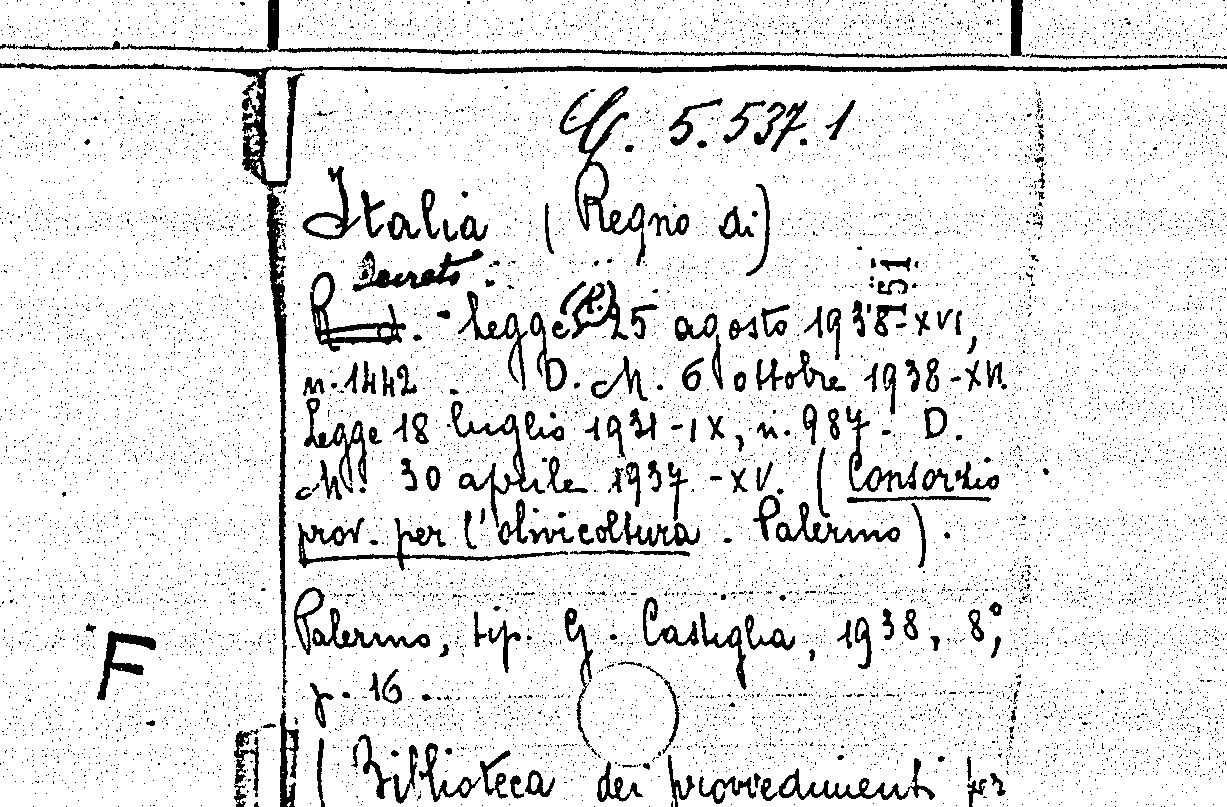 G. 5.537.1
Italia (Regno di)
Decreto
R. d. - Legge (R.) 25 agosto 1938-XVI,
151
n. 1442. D. M. 6 ottobre 1938-XVI.
Legge 18 luglio 1931-IX, n. 987- D.
M. 30 aprile 1937-XV. (Consorzio
prov. per l'olivicoltura. Palermo).
Palermo, tip. G. Castiglia, 1938, 8°,
p. 16.
F
(Biblioteca dei provvedimenti per